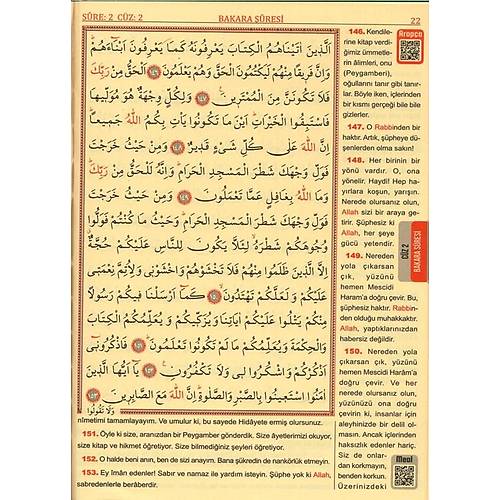 SÛRE: 2 CÜZ: 2 BAKARA SÛRESİ 22
اَلَّذ۪ينَ اٰتَيْنَاهُمُ الْكِتَابَ يَعْرِفُونَهُ كَمَا يَعْرِفُونَ اَبْنَٓاءَهُمْۜ
وَاِنَّ فَر۪يقًا مِنْهُمْ لَيَكْتُمُونَ الْحَقَّ وَهُمْ يَعْلَمُونَ ﴿١٤٦﴾ اَلْحَقُّ مِنْ رَبِّكَ
فَلَا تَكُونَنَّ مِنَ الْمُمْتَر۪ينَ ﴿١٤٧﴾ وَلِكُلٍّ وِجْهَةٌ هُوَ مُوَلّ۪يهَا
فَاسْتَبِقُوا الْخَيْرَاتِۜ اَيْنَ مَا تَكُونُوا يَأْتِ بِكُمُ اللّٰهُ جَم۪يعًاۜ
اِنَّ اللّٰهَ عَلٰى كُلِّ شَيْءٍ قَد۪يرٌ ﴿١٤٨﴾ وَمِنْ حَيْثُ خَرَجْتَ
فَوَلِّ وَجْهَكَ شَطْرَ الْمَسْجِدِ الْحَرَامِۜ وَاِنَّهُ لَلْحَقُّ مِنْ رَبِّكَۜ
وَمَا اللّٰهُ بِغَافِلٍ عَمَّا تَعْمَلُونَ ﴿١٤٩﴾ وَمِنْ حَيْثُ خَرَجْتَ
فَوَلِّ وَجْهَكَ شَطْرَ الْمَسْجِدِ الْحَرَامِۜ وَحَيْثُ مَا كُنْتُمْ فَوَلُّوا
وُجُوهَكُمْ شَطْرَهُۙ لِئَلَّا يَكُونَ لِلنَّاسِ عَلَيْكُمْ حُجَّةٌۗ
اِلَّا الَّذ۪ينَ ظَلَمُوا مِنْهُمْ فَلَا تَخْشَوْهُمْ وَاخْشَوْن۪ي وَلِاُتِمَّ نِعْمَت۪ي
عَلَيْكُمْ وَلَعَلَّكُمْ تَهْتَدُونَ ﴿١٥٠﴾ كَمَٓا اَرْسَلْنَا ف۪يكُمْ رَسُولًا
مِنْكُمْ يَتْلُوا عَلَيْكُمْ اٰيَاتِنَا وَيُزَكّ۪يكُمْ وَيُعَلِّمُكُمُ الْكِتَابَ
وَالْحِكْمَةَ وَيُعَلِّمُكُمْ مَا لَمْ تَكُونُوا تَعْلَمُونَ ﴿١٥١﴾ فَاذْكُرُون۪ٓي
اَذْكُرْكُمْ وَاشْكُرُوا ل۪ي وَلَا تَكْفُرُونِ ﴿١٥٢﴾ يَٓا اَيُّهَا الَّذ۪ينَ
اٰمَنُوا اسْتَع۪ينُوا بِالصَّبْرِ وَالصَّلٰوةِۜ اِنَّ اللّٰهَ مَعَ الصَّابِر۪ينَ ﴿١٥٣﴾
وَلَا تَقُولُوا
Arapça
146. Kendile-
rine kitap verdi-
ğimiz ümmetle-
rin âlimleri, onu
(Peygamberi),
oğullarını tanır gibi tanır-
lar. Böyle iken, içlerinden
bir kısmı gerçeği bile bile
gizlerler.
147. O Rabbinden bir
haktır. Artık, şüpheye dü-
şenlerden olma sakın!
148. Her birinin bir
yönü vardır. O, ona
yönelir. Haydi! Hep ha-
yırlara koşun, yarışın.
Nerede olursanız olun,
Allah sizi bir araya ge-
tirir. Şüphesiz ki
Allah, her şeye
gücü yetendir.
149. Nereden
yola çıkarsan
çık, yüzünü
hemen Mescidi
Haram'a doğru çevir. Bu,
şüphesiz haktır. Rabbin-
den olduğu muhakkaktır.
Allah, yaptıklarınızdan
habersiz değildir.
150. Nereden yola
çıkarsan çık, yüzünü
hemen Mescidi Harâm'a
doğru çevir. Ve her
nerede olursanız olun,
yüzünüzü ona doğru
çevirin ki, insanlar için
aleyhinizde bir delil ol-
masın. Ancak içlerinden
haksızlık edenler hariç.
Siz de onlar-
dan korkmayın,
benden korkun.
Üzerinizdeki
CÜZ 2
BAKARA SÛRESİ
Meal
nîmetimi tamamlayayım. Ve umulur ki, bu sayede Hidâyete ermiş olursunuz.
151. Öyle ki size, aranızdan bir Peygamber gönderdik. Size âyetlerimizi okuyor,
size kitap ve hikmet öğretiyor. Size bilmediğiniz şeyleri öğretiyor.
152. O halde beni anın, ben de sizi anayım. Bana şükredin de nankörlük etmeyin.
153. Ey Îman edenler! Sabır ve namaz ile yardım isteyin. Şüphe yok ki Allah,
sabredenlerle berâberdir.